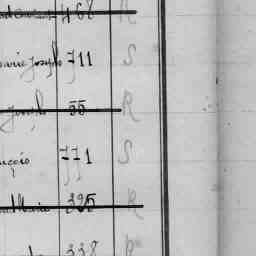 468 R
Marie Joseph 711 S
Joseph 55 R
771 S
Marie 325 R
338 R